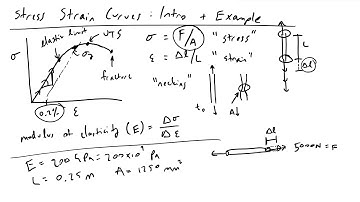 Stress Strain Curves : Intro + Example
elastic limit
UTS
σy
σ
fracture
ε
0.2%
σ = F/A "stress"
ε = Δl/L "strain"
"necking"
t₀
A↓
L
Δl
modulus of elasticity (E) = Δσ/Δε
E = 200 GPa = 200x10⁹ Pa
L = 0.25 m A = 1250 mm²
Δl
5000N = F